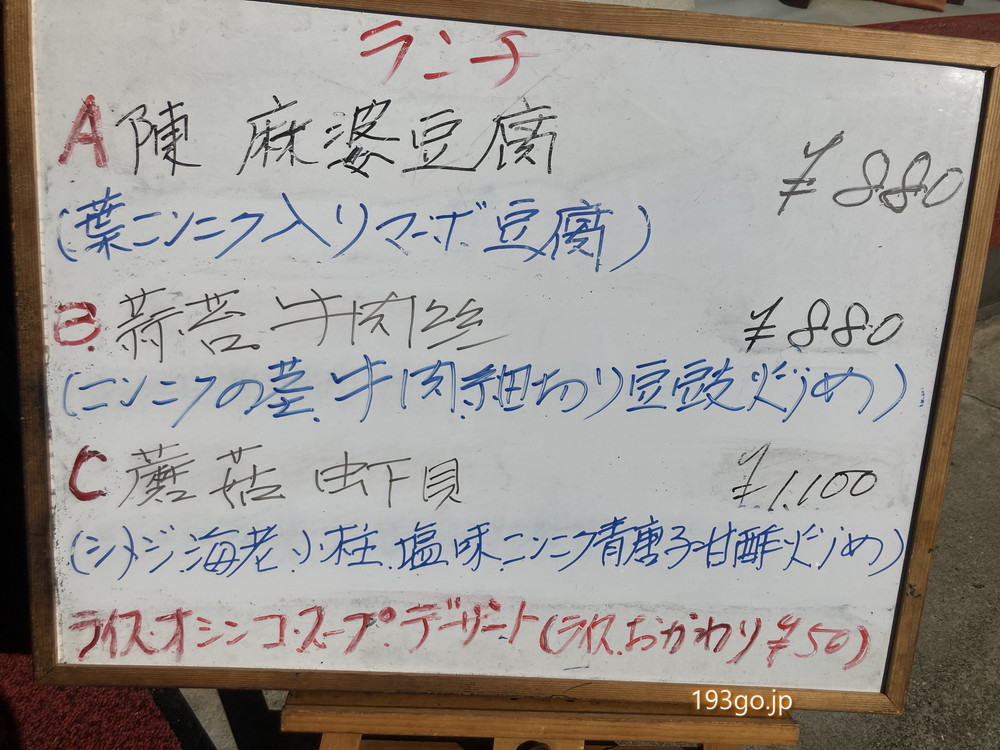 ランチ
A 陳 麻婆豆腐 ¥880
(葉ニンニク入リマーボ豆腐)
B. 蒜苔 牛肉絲 ¥880
(ニンニクの茎.牛肉細切り豆豉炒め)
C 蘑菇 虾貝 ¥1,100
(シメジ.海老.小柱.塩味.ニンニク青唐子甘酢炒め)
ライス.オシンコ.スープ.デザート(ライス.おかわり¥50)
193go.jp